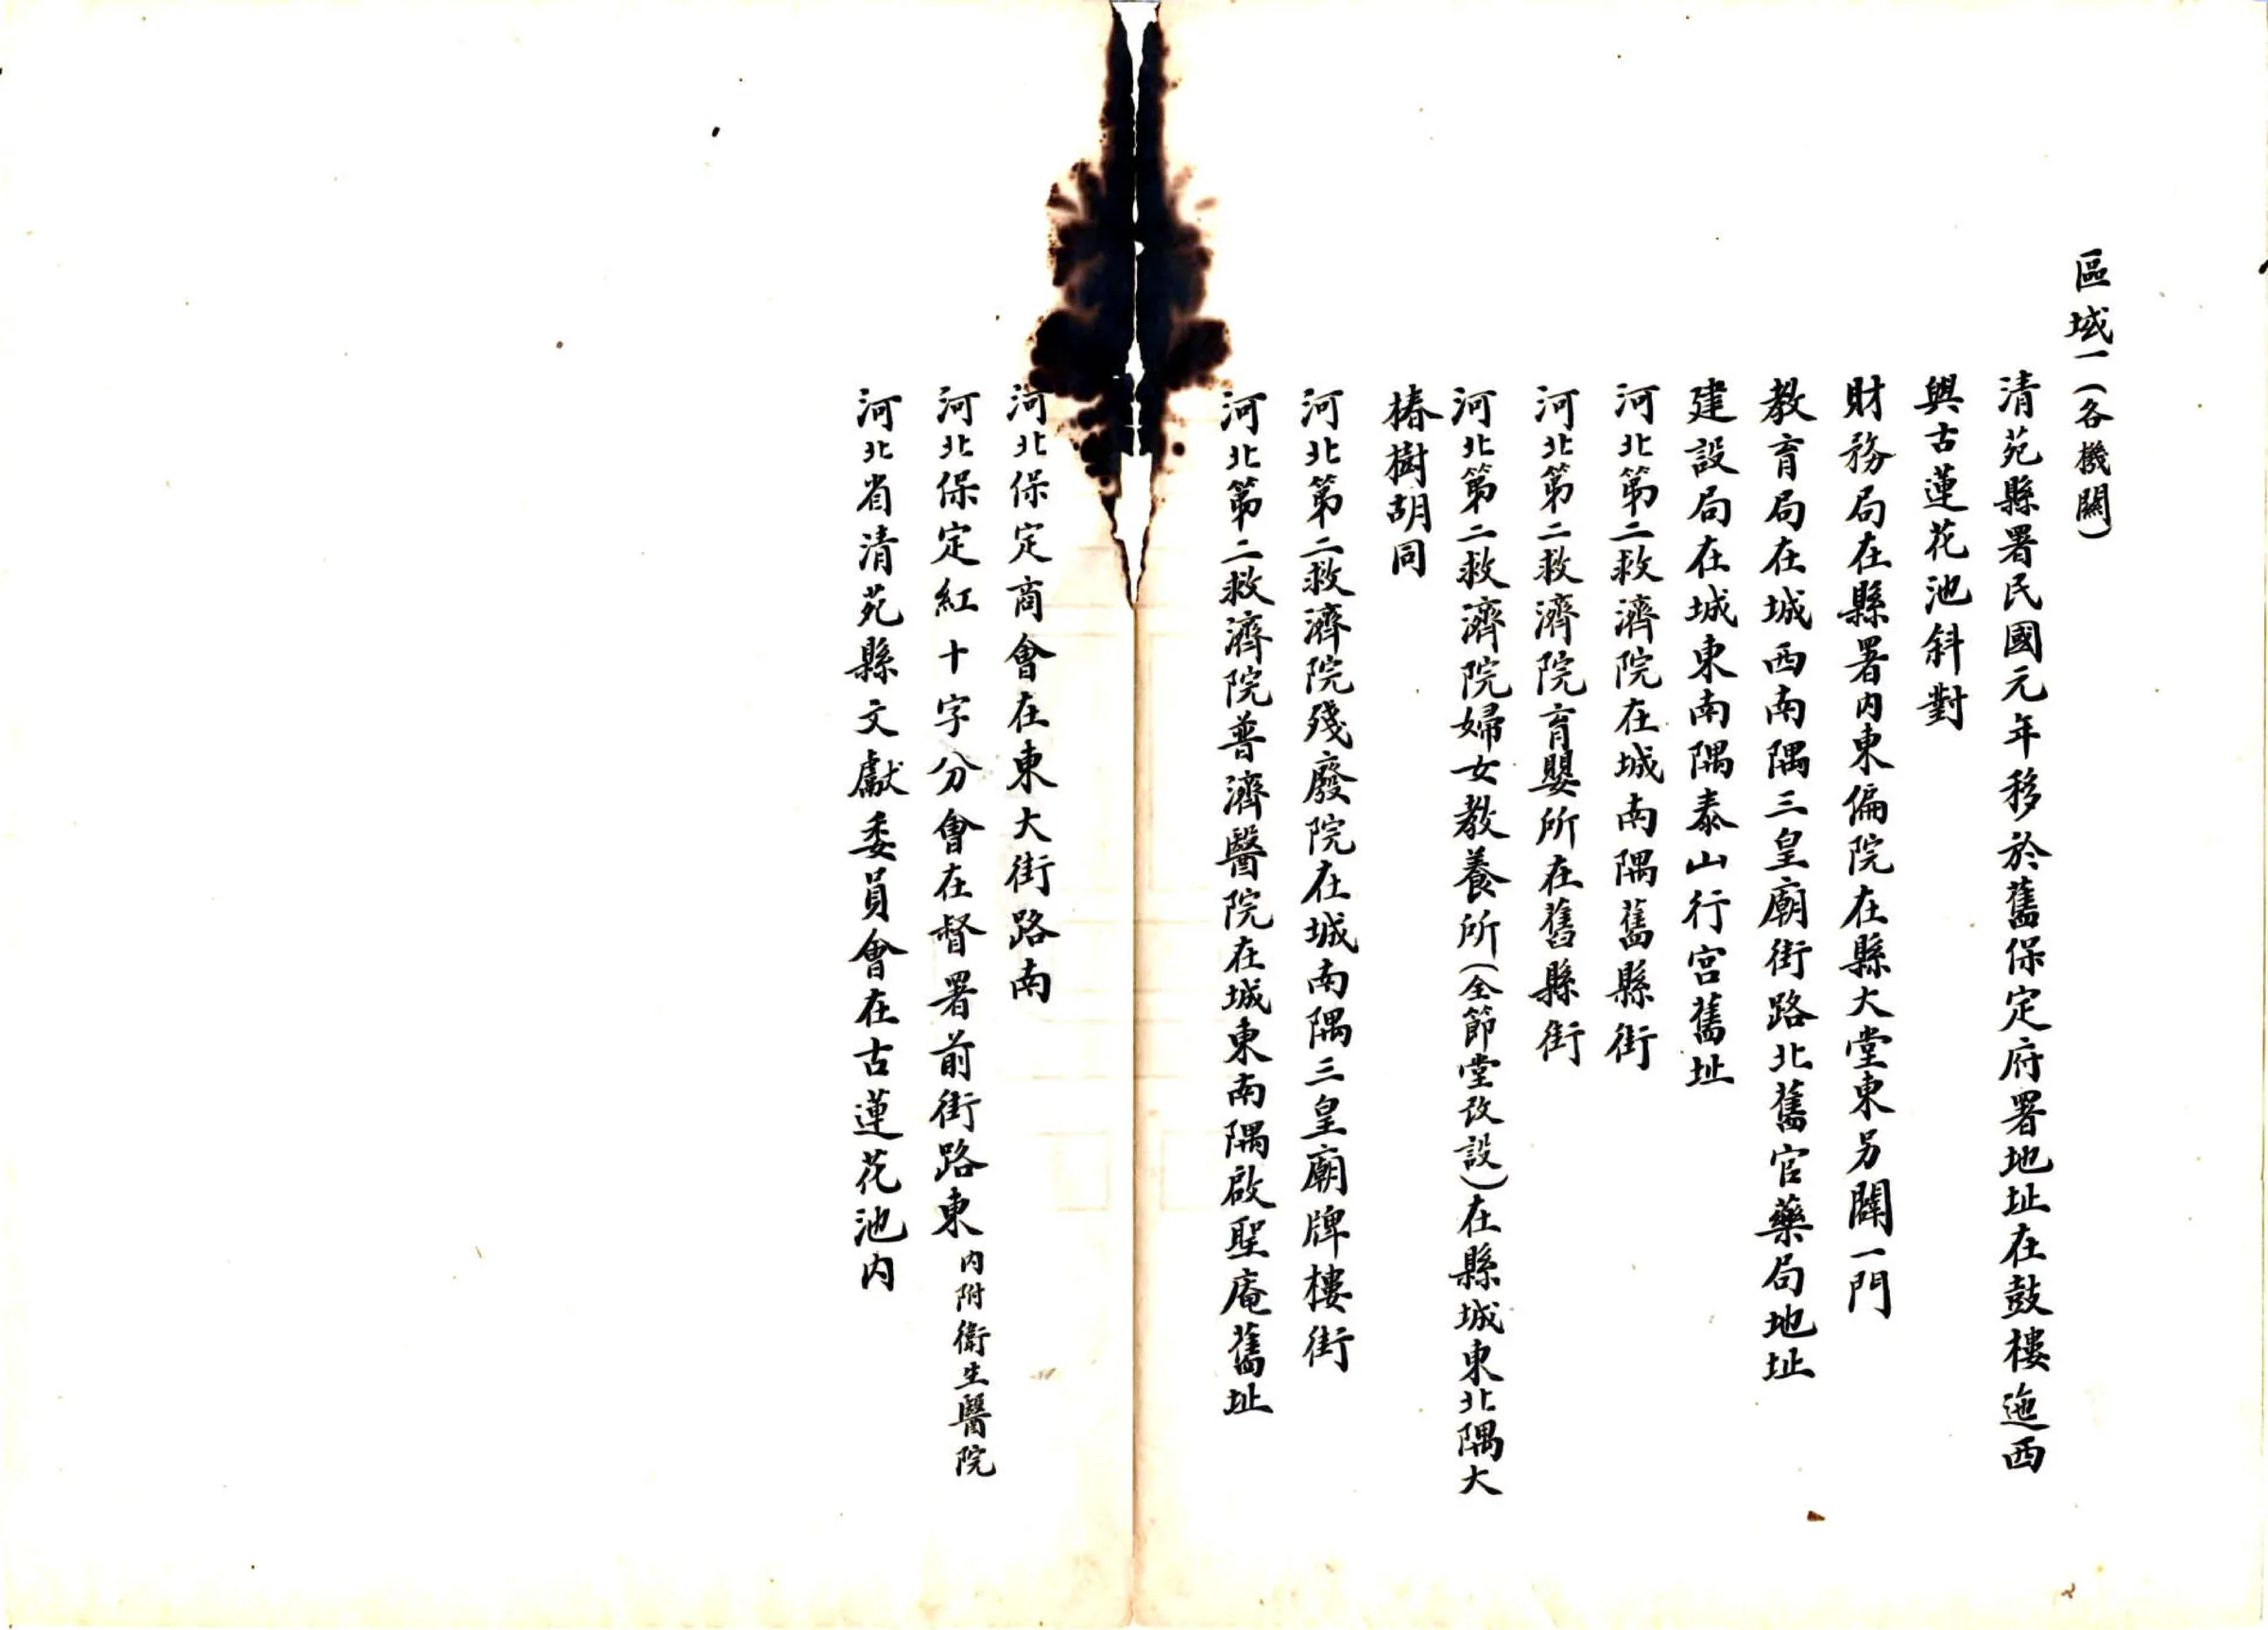 區域一(各機關)
清苑縣署民國元年移於舊保定府署地址在鼓樓迤西
與古蓮花池斜對
財務局在縣署内東偏院在縣大堂東另闢一門
教育局在城西南隅三皇廟街路北舊官藥局地址
建設局在城東南隅泰山行宮舊址
河北第二救濟院在城南隅舊縣街
河北第二救濟院育嬰所在舊縣街
河北第二救濟院婦女教養所(全節堂改設)在縣城東北隅大
椿樹胡同
河北第二救濟院殘廢院在城南隅三皇廟牌樓街
河北第二救濟院普濟醫院在城東南隅啟聖庵舊址
河北保定商會在東大街路南
河北保定紅十字分會在督署前街路東内附衛生醫院
河北省清苑縣文獻委員會在古蓮花池内